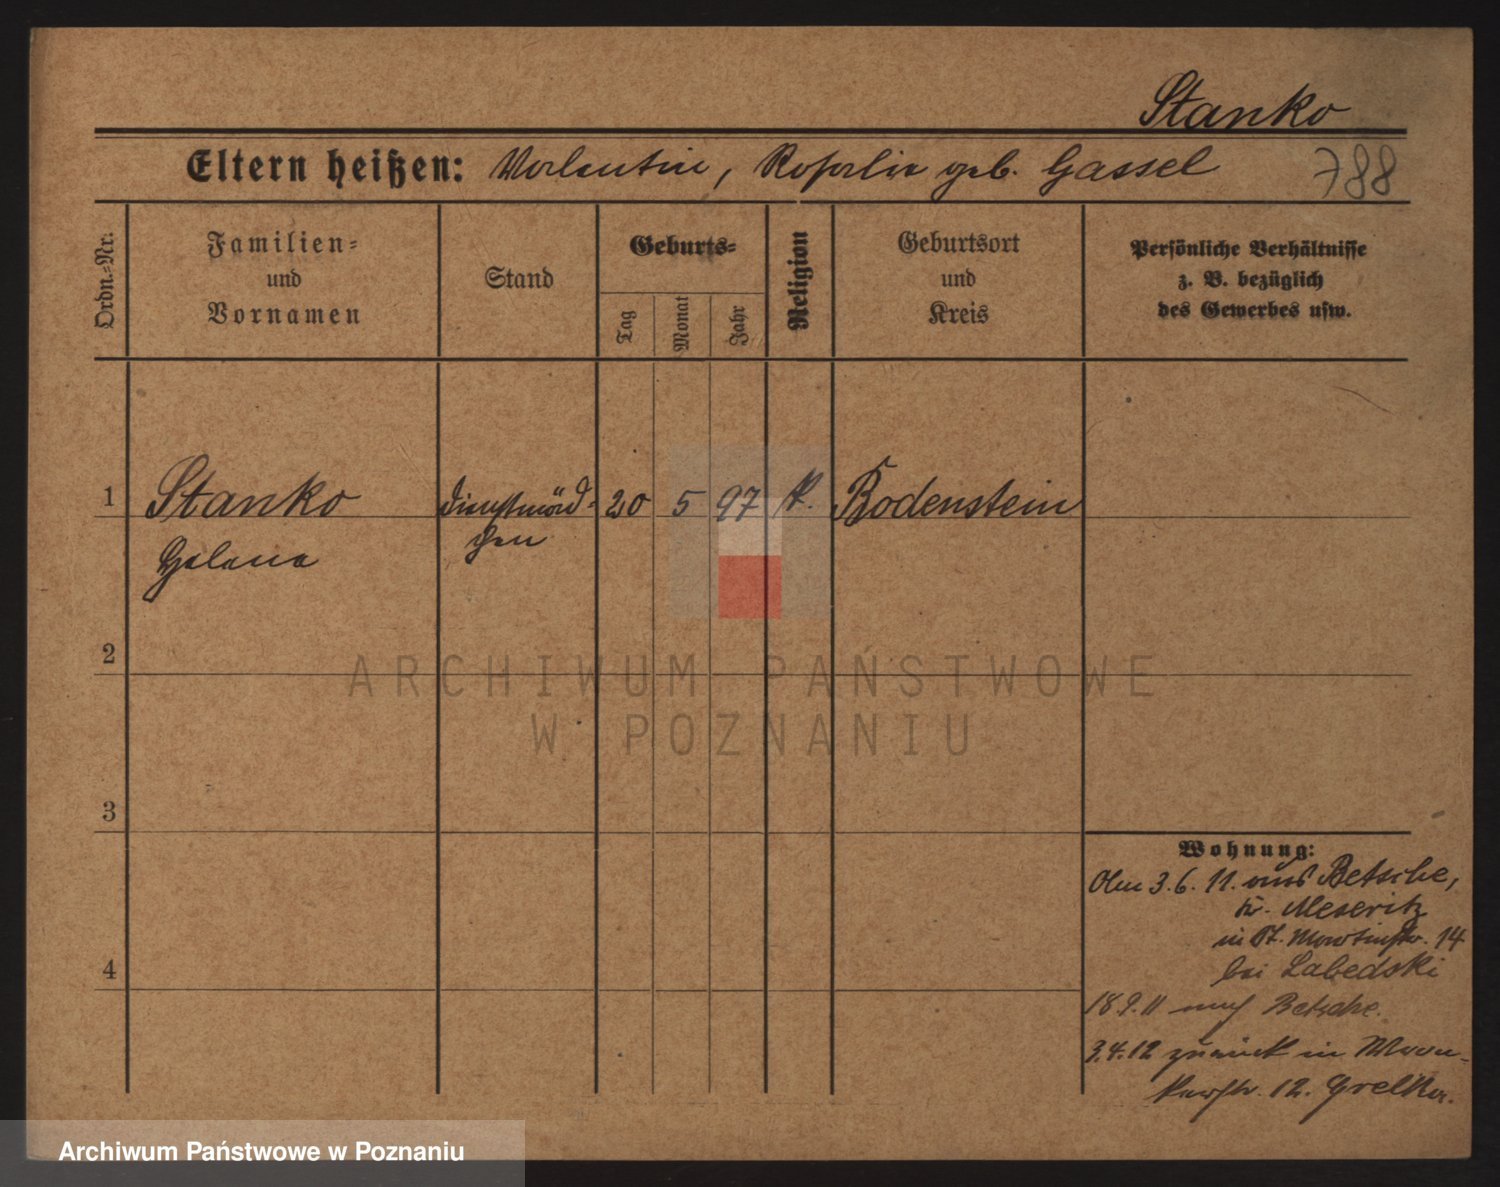 Stanko
Eltern heißen: Valentin, Rosalie geb. Gassel
788
Ordn.-Nr.
Familien-
und
Vornamen
Stand
Geburts-
Tag
Monat
Jahr
Religion
Geburtsort
und
Kreis
Persönliche Verhältnisse
z. B. bezüglich
des Gewerbes usw.
1 Stanko Dienstmäd- 20 5 97 k. Bodenstein
Helena chen
2
ARCHIWUM PAŃSTWOWE
W POZNANIU
3
Wohnung:
3.6.11. aus Betsche,
Kr. Meseritz
in St. Martinstr. 14
bei Labedski
18.9.11 nach Betsche.
3.4.12 zurück in
12.
4
Archiwum Państwowe w Poznaniu